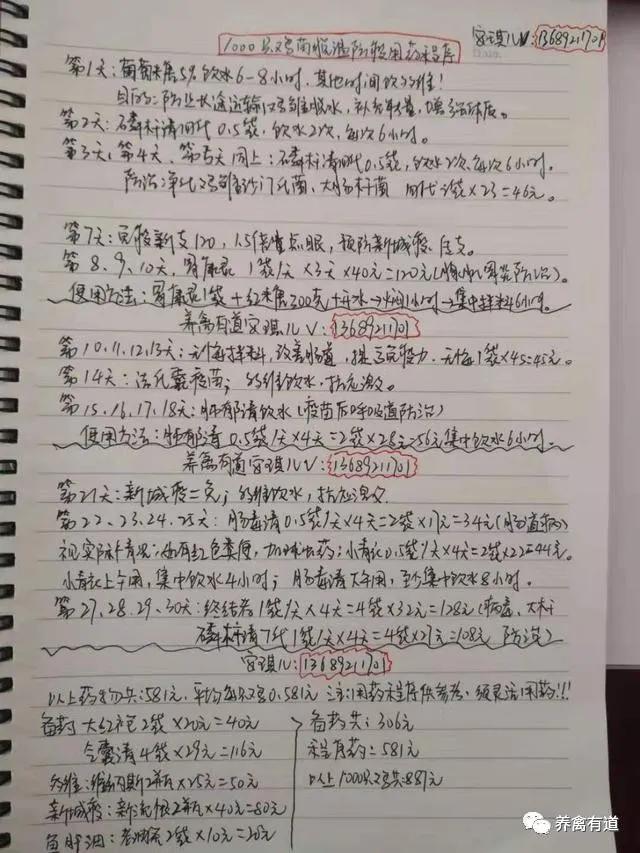 1000只鸡苗脱温阶段用药程序 宫琪儿V:13689211701
第1天:葡萄糖5%饮水6-8小时,其他时间饮多维!
目的:防止长途运输鸡雏脱水,补充能量,增强体质。
第2天:磷杆清四代0.5袋,饮水2次,每次6小时。
第3天、第4天、第5天同上:磷杆清四代0.5袋,饮水2次,每次6小时。
防治:净化鸡雏沙门氏菌、大肠杆菌 四代2袋×23=46元。
第7天:免疫新支120,1.5倍量点眼,预防新城疫、传支。
第8、9、10天,胃康君1袋/天×3天×40元=120元(腺肌胃炎防治)。
使用方法:胃康君1袋+红糖200克+开水→焖1小时→集中拌料6小时。
养禽有道宫琪儿V:13689211701
第10.11.12.13天:拌料,改善肠道,提高免疫力.1袋×45=45元。
第14天:法氏囊疫苗;多维饮水,抗应激。
第15.16.17.18天:肺郁清饮水(疫苗后呼吸道防治)
使用方法:肺郁清0.5袋/天×4天=2袋×28元=56元集中饮水6小时
养禽有道宫琪儿V:13689211701
第21天:新城疫二免;多维饮水,抗应激
第22、23.24.25天:肠毒清0.5袋/天×4天=2袋×17元=34元(肠道病)
视实际情况:如有红色粪便,加球虫药:小青化0.5袋/天×4天=2袋×22=44元。
小青化上午用,集中饮水4小时;肠毒清下午用,至少集中饮水8小时.
第27.28.29、30天:终结者1袋/天×4天=4袋×32元=128元(病毒、大杆
磷杆清7代1袋/天×4天=4袋×27元=108元 防治)
宫琪儿V:13689211701
以上药物共:581元,平均每只鸡0.581元 注:用药程序供参考,须灵活用药!!!
备药 大红袍2袋×20元=40元
备药共:306元
含囊清4袋×29元=116元
程序药=581元
多维:2瓶×25元=50元
以上1000只鸡共:887元
新城疫:2瓶×40元=80元
鱼肝油:2袋×10元=20元
养禽有道